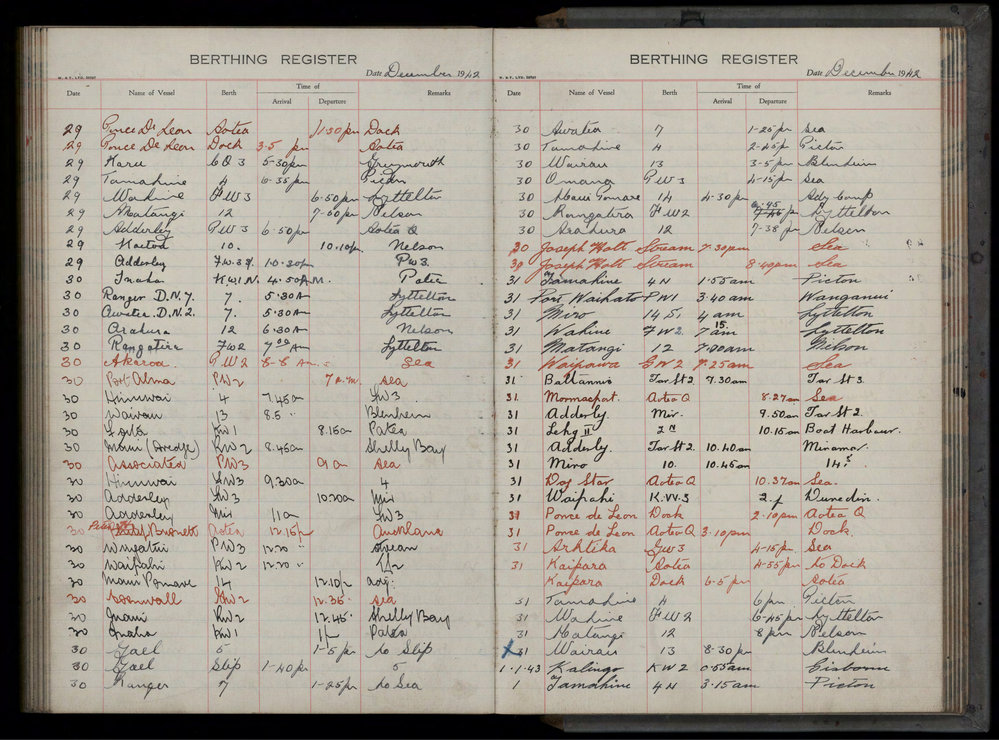 BERTHING REGISTER
Date December 1942
Date Name of Vessel Berth Time of Arrival Departure Remarks
29 Ponce De Leon Aotea 1.30 pm Dock
29 Ponce De Leon Dock 3.5 pm Aotea
29 5.30pm Greymouth
29 Tamahine 4 6.35pm Picton
29 Wahine FW3 6.50pm Lyttelton
29 Matangi 12 7.50pm Nelson
29 Adderley PW3 6.50pm Aotea Q
29 10. 10.10pm Nelson
29 Adderley 10.30pm PW3.
30 Inaha 4.50A.M. Patea
30 Ranger D.N.7. 7. 5.30AM Lyttelton
30 Awatea D.N.2. 7. 5.30AM Lyttelton
30 Arahura 12 6.30AM Nelson
30 Rangatira FW2 7 00 AM Lyttelton
30 Akaroa PW2 Sea
30 Port Alma PW2 7 a.m. sea
30 Hinuwai 4 7.45am
30 Wairau 13 8.5 " Blenheim
30 KW1 8.15am Patea
30 Maui (Dredge) KW2 8.45am Shelly Bay
30 Associated PW3 9 am sea
30 Hinuwai 9.30am 4
30 Adderley 10.20am Mir
30 Adderley Mir 11am
30 Burnett Aotea 12.15p Auckland
30 Wingatui PW3 12.20 " stream
30 Waipahi KW2 12.20 "
30 Maui Pomare 14 12.10p adj:
30 Cornwall 12.35 sea
30 KW2 12.45 Shelly Bay
30 Inaha KW1 1p Patea
30 Gael 5 1-5pm to Slip
30 Gael Slip 1-40pm 5
30 Ranger 7 1-25pm to Sea
BERTHING REGISTER
Date December 1942
Date Name of Vessel Berth Time of Arrival Departure Remarks
30 Awatea 7 1-25pm Sea
30 Tamahine 4 2-45pm Picton
30 Wairau 13 3-5pm Blenheim
30 Omana PW3 4-15pm Sea
30 Maui Pomare 14 4-30pm
30 Rangatira FW2 6.45 Lyttelton
30 Arahura 12 7-38pm Nelson
30 Joseph Holt Stream 7.30pm Sea
30 Joseph Holt Stream 8.40pm Sea
31 Tamahine 4N 1.55am Picton
31 Port Waikato PW1 3.40am Wanganui
31 Miro 14 S. 4am Lyttelton
31 Wahine FW2. 7 15 am Lyttelton
31 Matangi 12 7.00am Nelson
31 Waipawa GW2 7.25am Sea
31 Tar St 2. 7.30am Tar St 3.
31 Mormacport. Aotea Q 8.27am Sea
31 Adderly Mir. 9.50am Tar St 2.
31 2N 10.15am Boat Harbour.
31 Adderly. Tar St 2. 10.40am Miramar.
31 Miro 10. 10.45am 14 S
31 Dog Star Aotea Q 10.37am Sea.
31 Waipahi K.W.3. 2.p Dunedin.
31 Ponce de Leon Dock 2.10pm Aotea Q
31 Ponce de Leon Aotea Q 3.10pm Dock.
31 Arkteka GW3 4-15pm Sea
31 Kaipara Aotea 4-55pm to Dock
Kaipara Dock 6-5pm Aotea
31 Tamahine 4 6pm Picton
31 Wahine FW2 6-45pm Lyttelton
31 Matangi 12 8pm Nelson
X 31 Wairau 13 8-30pm Blenheim
1.1.43 Kalingo KW2 0.55am Gisborne
1 Tamahine 4N 3.15am Picton